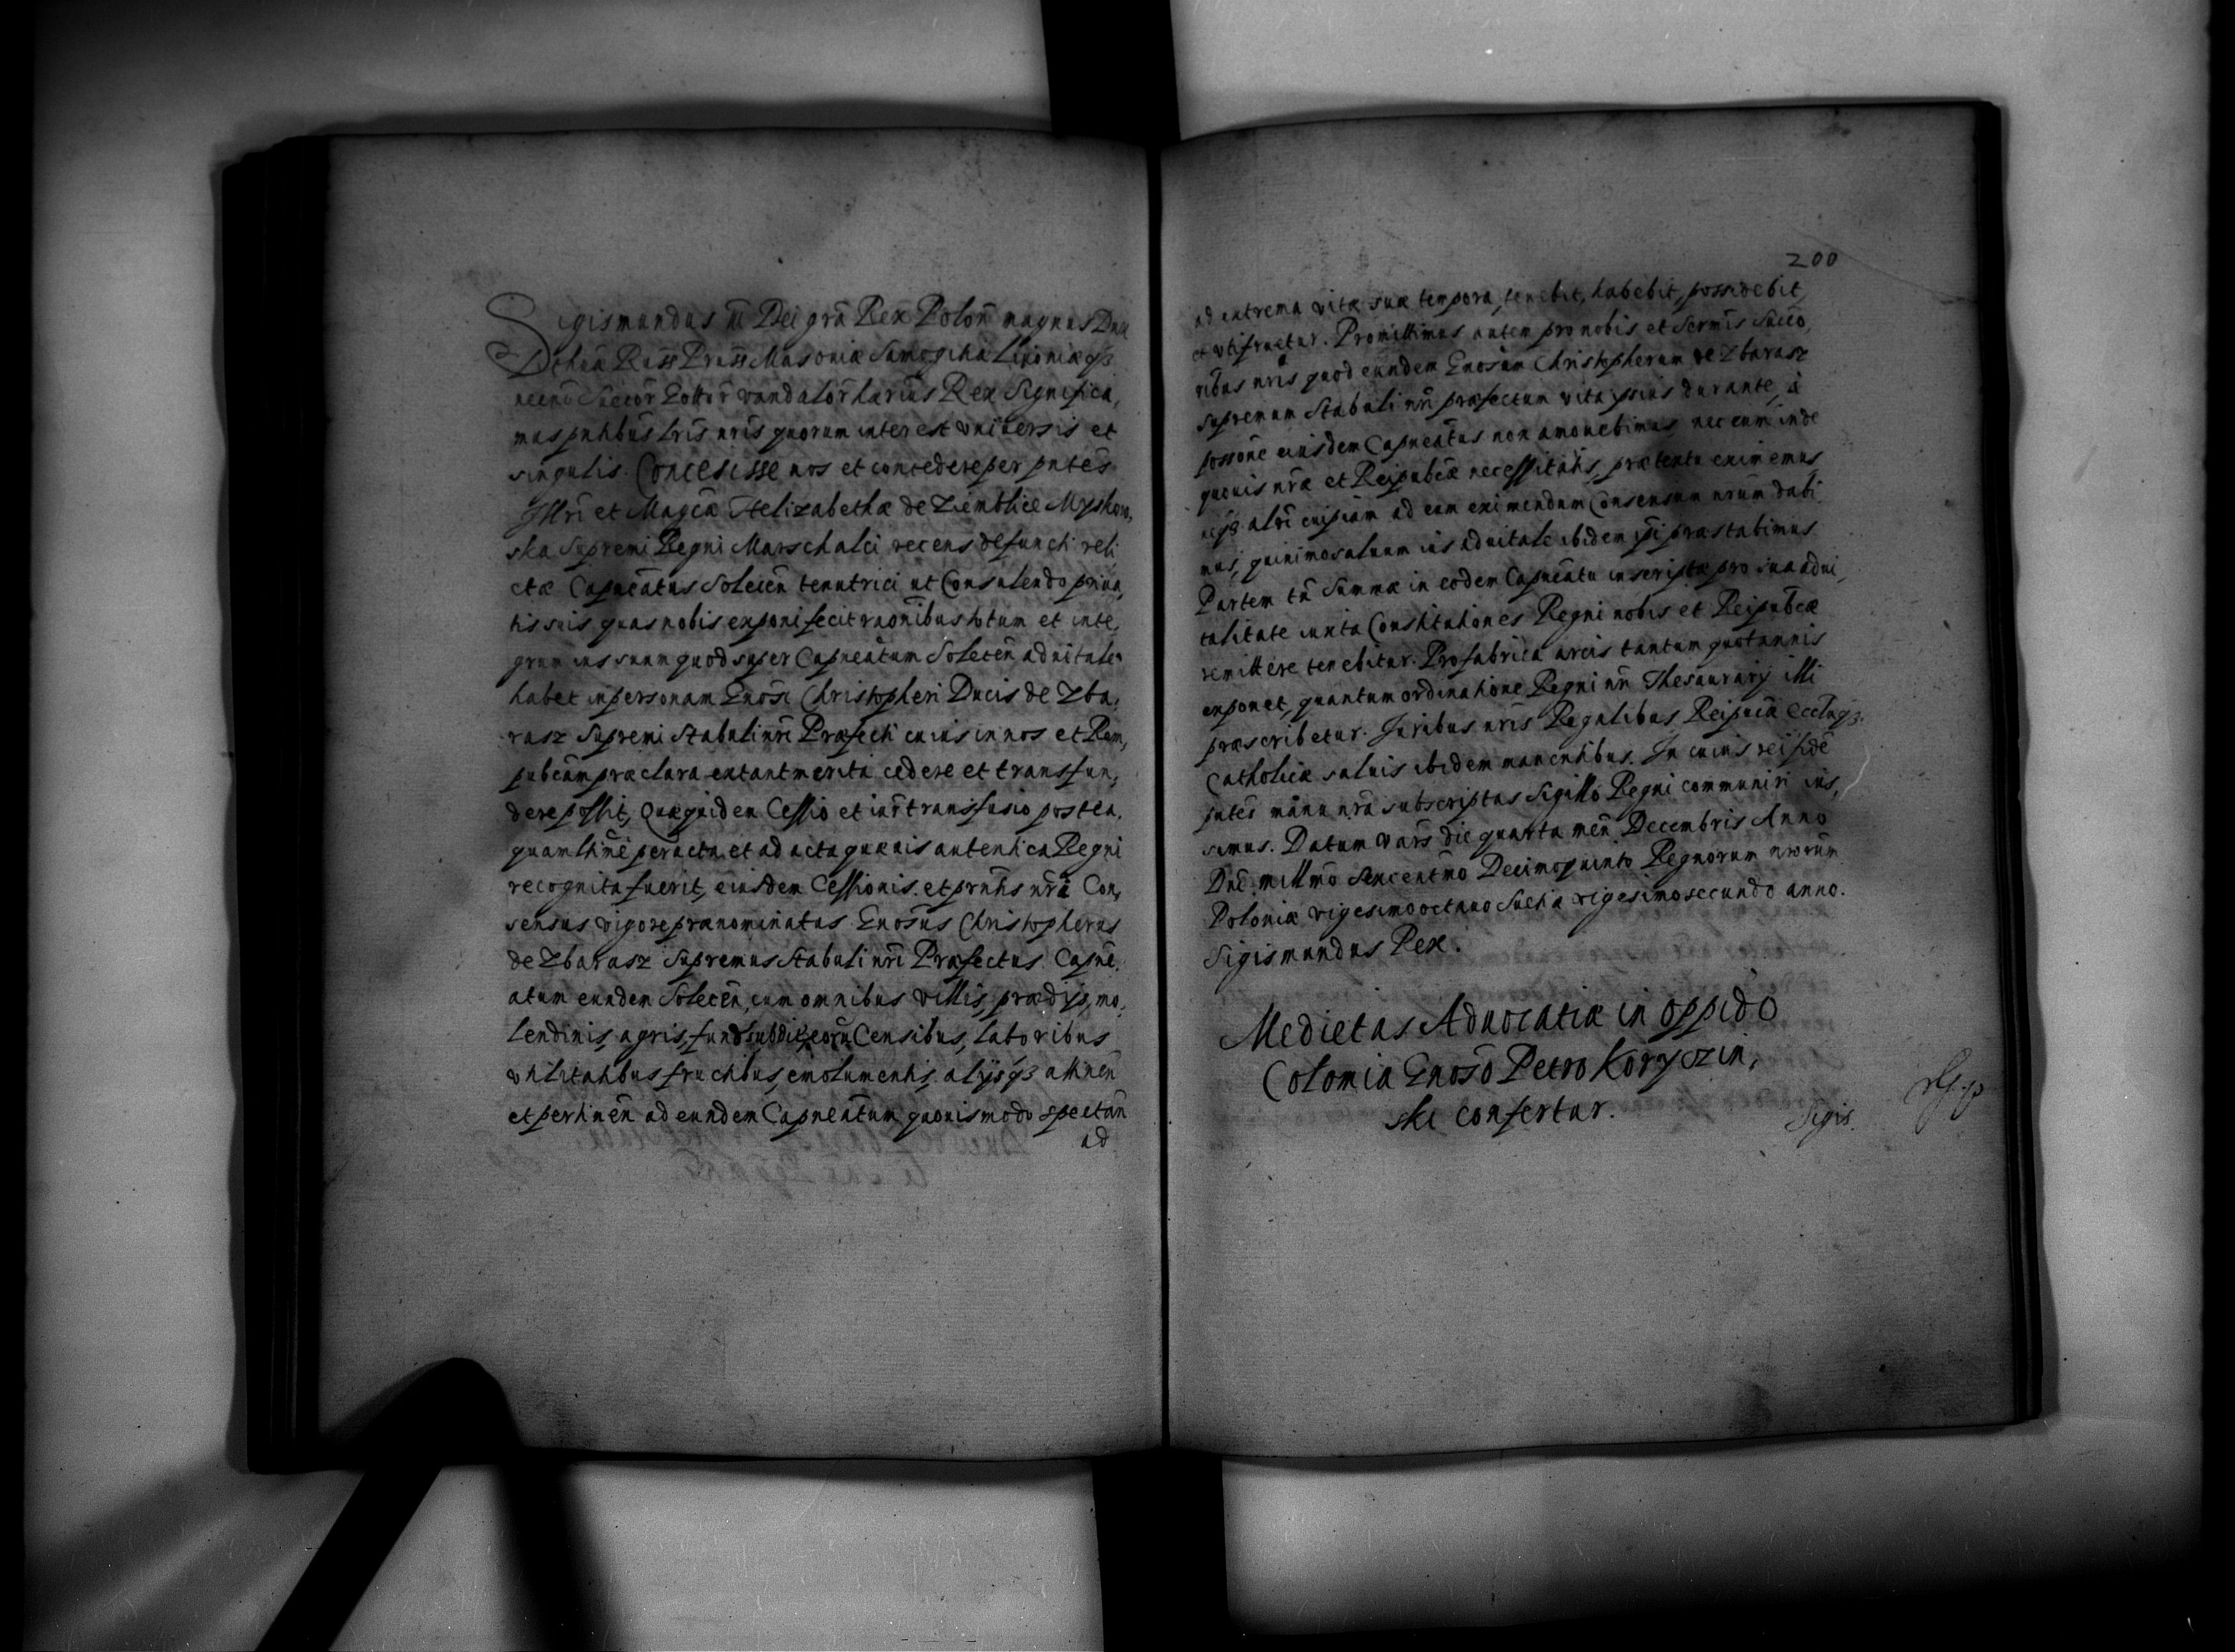 Sigismundus III Dei grã Rex Poloñ magnus Dux
Lithuã Russ Pruss Masouiæ Samogitiæ Liuoniæq3
necnõ Suecor̃ Gottor̃ vandalor̃ hærius Rex Significa,
mus pñtibus lr̃is nr̃is quorum interest vniuersis et
singulis. Concessisse nos et concedere per pñtes
Illri et Magcã Helizabethæ de Ziemblice Myszkow,
ska Supremi Regni Marschalci recens defuncti reli
ctæ Capneatus Soleceñ tenutrici ut Consulendo priua,
tis suis quas nobis exponi fecit raõnibus totum et inte,
grum ius suum quod super Capneatum Soleceñ aduitale
habet in personam Gnõsi Christopheri Ducis de Zba,
rasz Supremi Stabuli nr̃i Præfecti cuius in nos et Rem,
pubcam præclara extant merita cedere et transfun,
dere possit, Quæquidem Cessio et iur̃ transfusio postea.
quam ltimẽ peracta et ad acta quæuis autentica Regni
recognita fuerit, eiusdem Cessionis et pñtis nr̃i Con,
sensus vigore prænominatus Gnosus Christopherus
de Zbarasz Supremus Stabuli nr̃i Præfectus Capne,
atum eundem Soleceñ, cum omnibus villis, prædijs, mo,
lendinis, agris, fund subdit eorũ Censibus, laboribus
vtilitatibus fructibus, emolumentis alijsq3 attineñ
et pertineñ ad eundem Capneatum quouismodo spectañ
ad
200
ad extrema vitæ suæ tempora, tenebit, habebit, possidebit,
et vtifruetur. Promittimus autem pro nobis et Sermis Succo,
ribus nr̃is quod eundem Gnosum Christopherum de Zbarasz
supremum Stabuli nr̃i præfectum vita ipsius durante, à
possõne eiusdem Capneatus non amouebimus, nec eum inde
quouis nr̃æ et Reipubcæ necessitatis, prætentu eximemus
neq3 altri cuipiam ad eum eximendum Consensum nr̃um dabi
mus, quinimo saluum ius aduitale ibidem ipi præstabimus
Partem tñ Summæ in eodem Capneatu inscriptæ pro sua adui,
talitate iuxta Constitutiones Regni nobis et Reipubcæ
remittere tenebitur. Pro fabrica arcis tantum quotannis
exponet, quantum ordinatione Regni nr̃i Thesaurarij illi
præscribetur. Juribus nr̃is Regalibus Reipucæ Ecclæq3.
Catholicæ saluis ibidem manentibus. In cuius rei fidẽ
pñtes manu nr̃a subscriptas Sigillo Regni communiri ius,
simus. Datum Vars die quarta meñ Decembris Anno
Dni millmo Sexcentmo Decimoquinto Regnorum nr̃orum
Poloniæ vigesimooctauo Sueciæ vigesimosecundo anno.
Sigismundus Rex.
Medietas Aduocatiæ in oppido
Colomia Gnoso Petro Koryczin,
ski confertur.
Sigis.